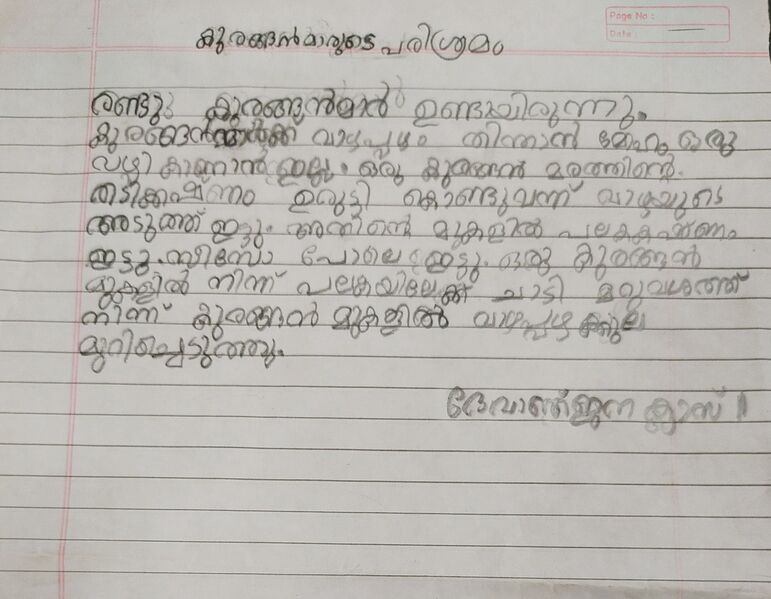 Page No :
Date :
കുരങ്ങൻമാരുടെ പരിശ്രമം
രണ്ടു കുരങ്ങൻമാർ ഉണ്ടായിരുന്നു.
കുരങ്ങൻമാർക്ക് വാഴപ്പഴം തിന്നാൻ മോഹം ഒരു
വഴി കാണാൻ ഇല്ല. ഒരു കുരങ്ങൻ മരത്തിന്റെ
തടികഷ്ണം ഉരുട്ടി കൊണ്ടുവന്ന് വാഴയുടെ
അടുത്ത് ഇട്ടു. അതിന്റെ മുകളിൽ പലകകഷ്ണം
ഇട്ടു. സീസോ പോലെ ഇട്ടു. ഒരു കുരങ്ങൻ
മുകളിൽ നിന്ന് പലകയിലേക്ക് ചാടി മറുവശത്ത്
നിന്ന് കുരങ്ങൻ മുകളിൽ വാഴപ്പഴക്കുല
മുറിച്ചെടുത്തു.
ദേവാഞ്ജന ക്ലാസ് II